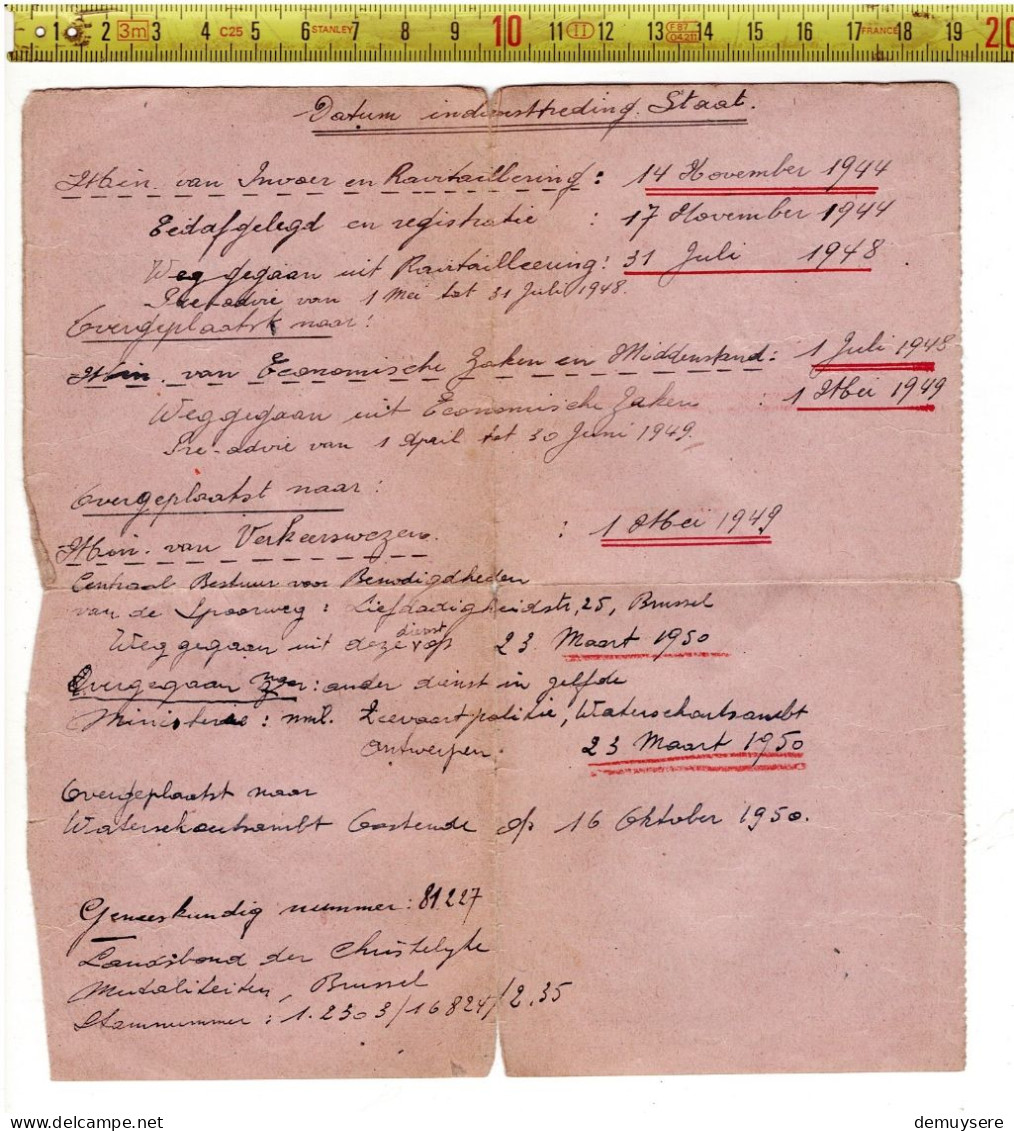 1 2 3m 4 C25 5 6 STANLEY 7 8 9 10 11 II 12 13 F87 04.211 14 15 16 17 FRANCE 18 19 20
Datum indiensttreding Staat.
Min. van Invoer en Ravitaillering : 14 November 1944
Eedafgelegd en registratie : 17 November 1944
Weg gegaan uit Ravitailleering : 31 Juli 1948
Pre-advie van 1 Mei tot 31 Juli 1948.
Overgeplaatst naar :
Min. van Economische Zaken en Middenstand : 1 Juli 1948
Weggegaan uit Economische Zaken : 1 Mei 1949
Pre-advie van 1 April tot 30 Juni 1949.
Overgeplaatst naar :
Min. van Verkeerswezen. : 1 Mei 1949
Centraal Bestuur voor Benodigdheden
van de Spoorweg : Liefdadigheidstr, 25, Brussel
Weg gegaan uit deze dienst op 23 Maart 1950
Overgegaan naar : ander dienst in zelfde
Ministerie : nml. Zeevaartpolitie, Waterschoutsambt
Antwerpen. 23 Maart 1950
Overgeplaatst naar
Waterschoutsambt Oostende op 16 Oktober 1950.
Geneeskundig nummer : 81227
Landsbond der Christelyke
Mutaliteiten, Brussel
Stamnummer : 1.2303/16824/2.35
demuysere